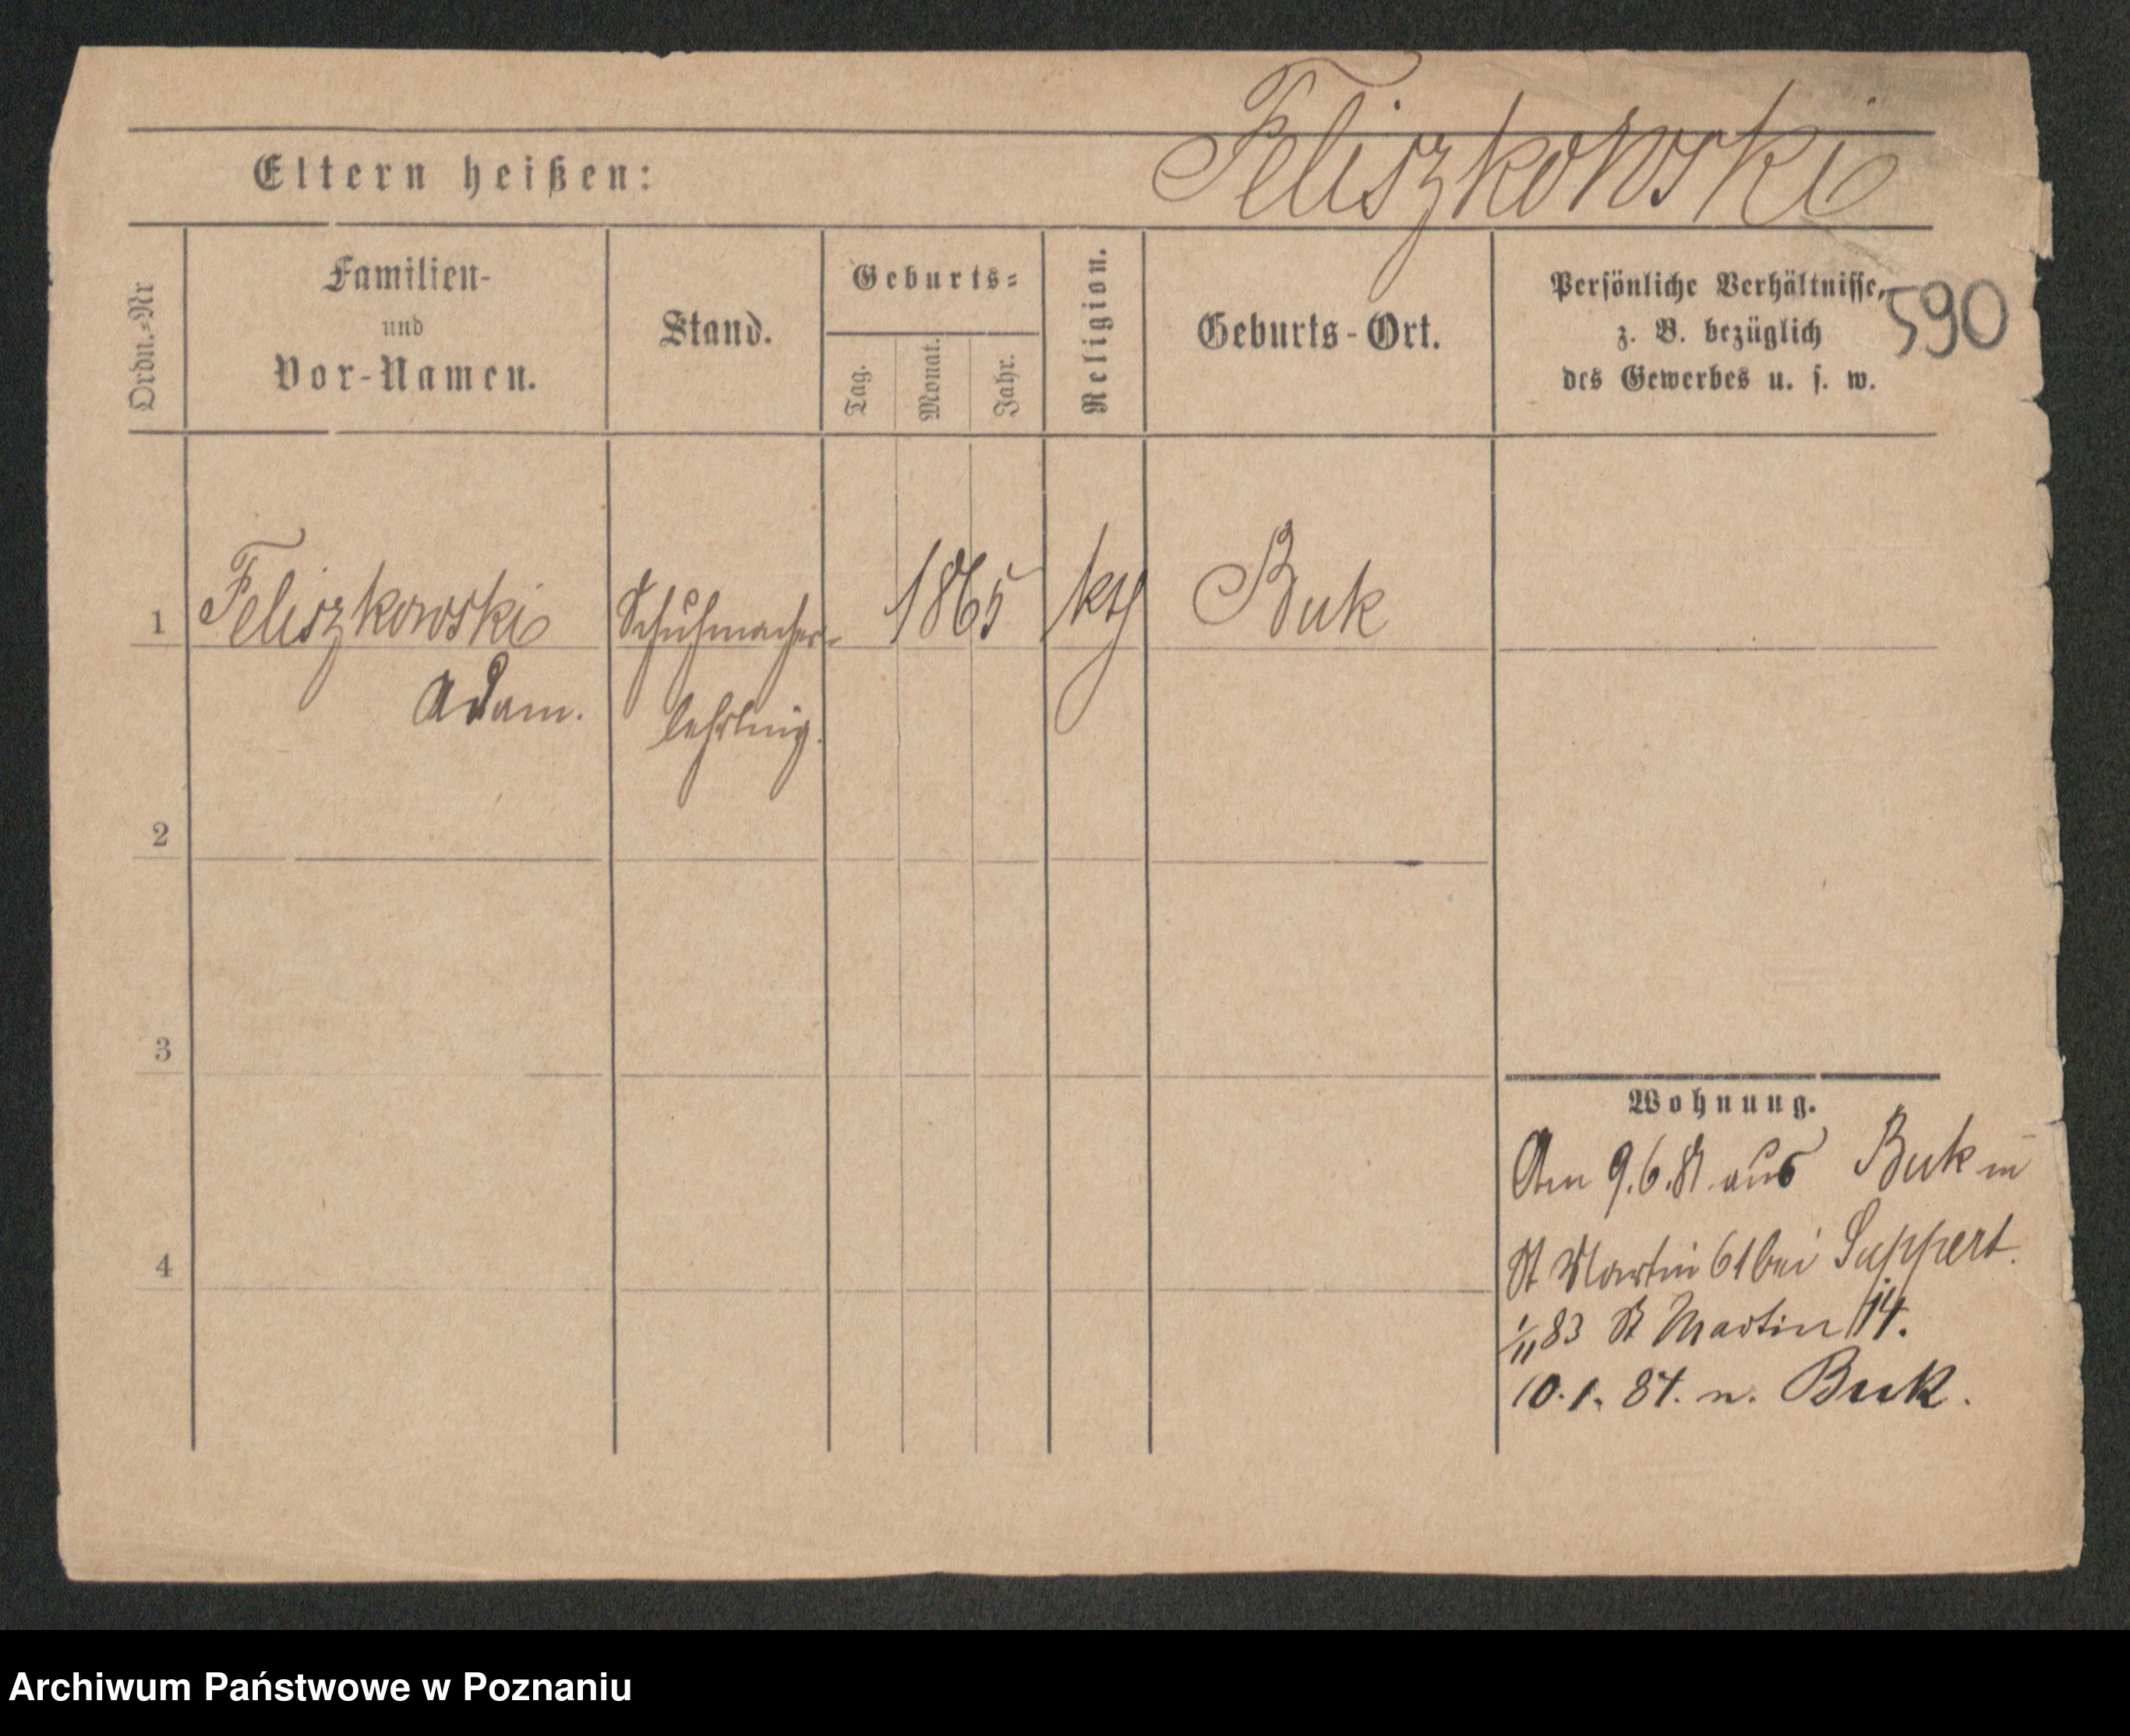 Feliszkowski
Eltern heißen:
Ordn.=Nr
Familien-
und
Vor-Namen.
Stand.
Geburts=
Tag.
Monat.
Jahr.
Religion.
Geburts-Ort.
Persönliche Verhältnisse,
z. B. bezüglich
des Gewerbes u. s. w.
590
1
Feliszkowski
Adam.
Schuhmacher-
lehrling.
1865
kth
Buk
2
3
4
Wohnung.
Am 9.6.81 aus Buk in
St Martin 61 bei Suppert.
1/11 83 St Martin 14.
10.1. 84. n. Buk.
Archiwum Państwowe w Poznaniu